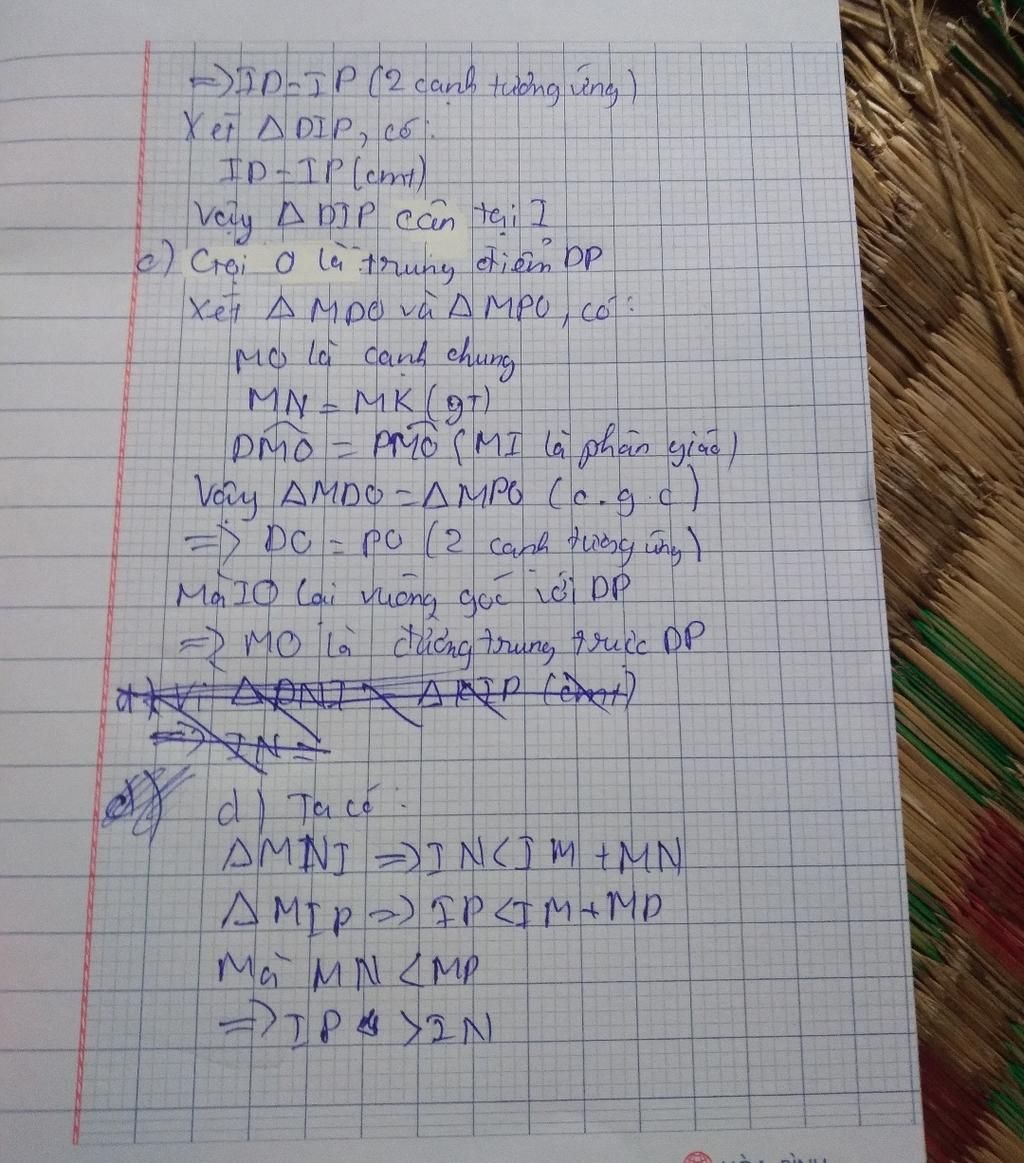 => ID = IP (2 cạnh tương ứng)
Xét Δ DIP, có:
ID = IP (cmt)
Vậy Δ DIP cân tại I
c) Gọi O là trung điểm DP
Xét Δ MDO và Δ MPO, có:
MO là cạnh chung
MN = MK (gt)
DMO = PMO (MI là phân giác)
Vậy ΔMDO = ΔMPO (c.g.c)
=> DO = PO (2 cạnh tương ứng)
Mà IO lại vuông góc với DP
=> MO là đường trung trực DP
d) Vì Δ DNI = Δ KIP (cmt)
=> IN =
d) Ta có:
ΔMNI => IN < IM + MN
ΔMIP => IP < IM + MP
Mà MN < MP
=> IP > IN